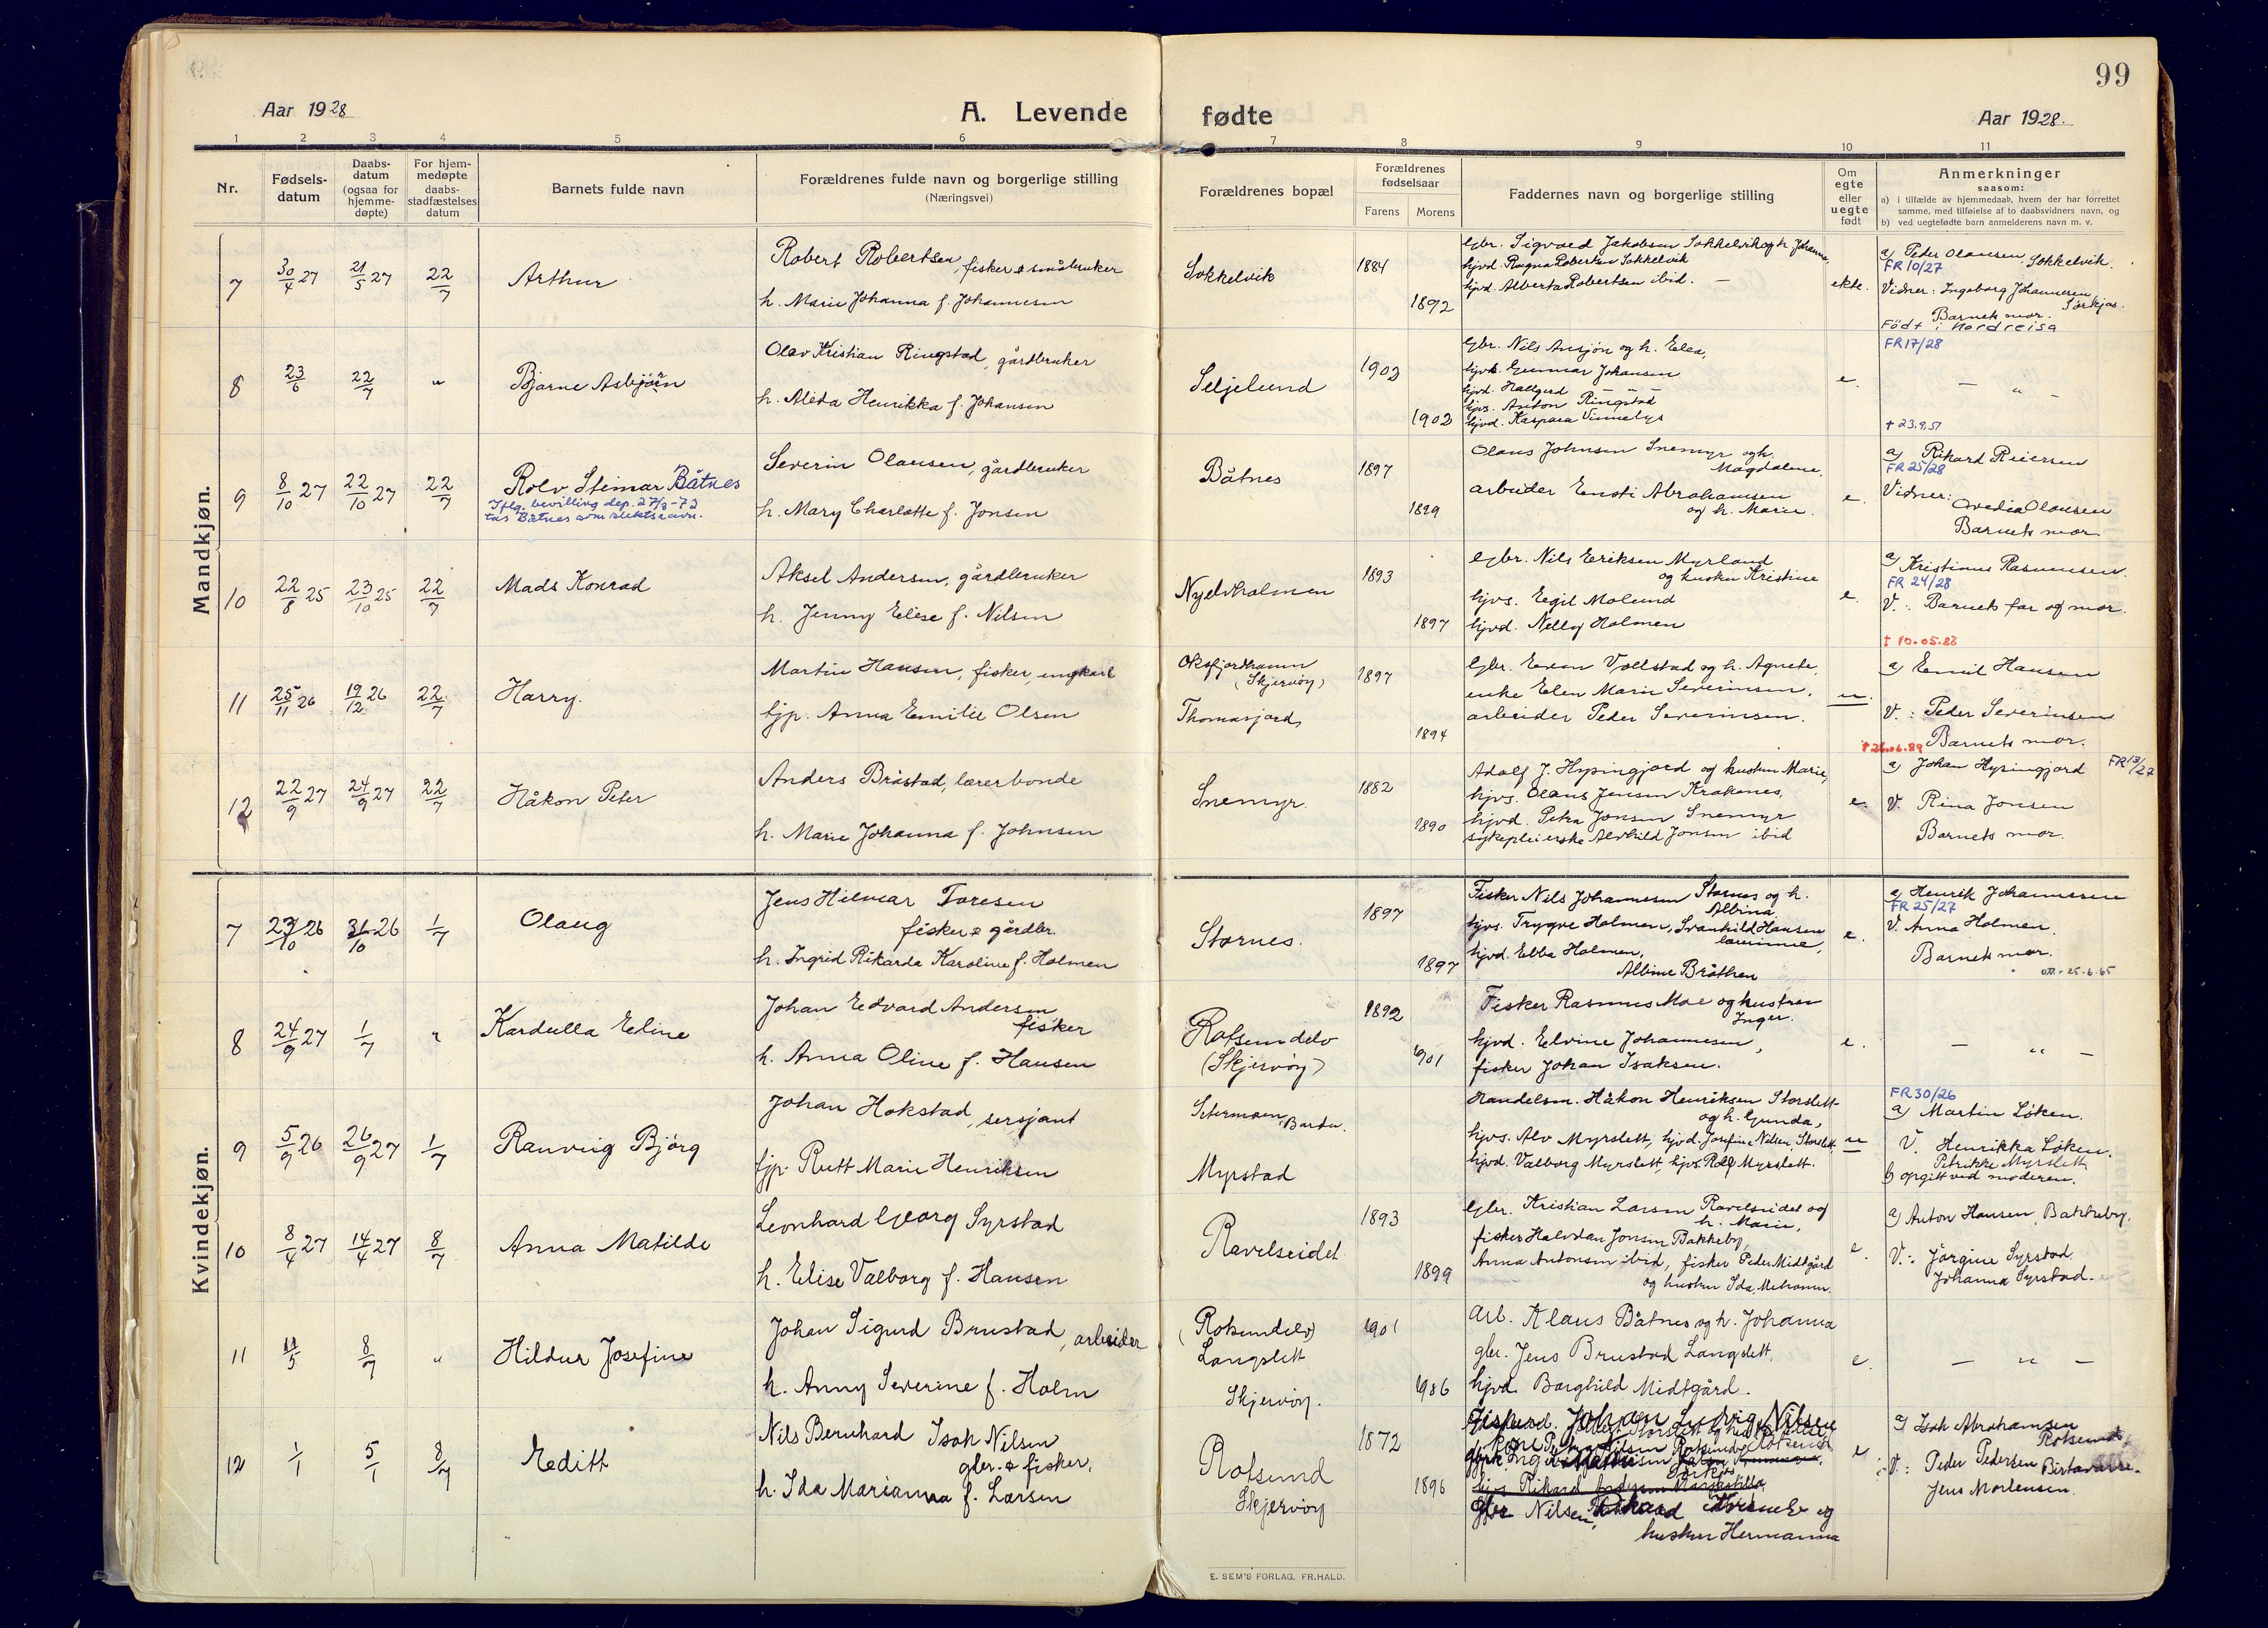 99
Aar 1928
A. Levende fødte
Aar 1928.
1 2 3 4 5 6 7 8 9 10 11
Nr.
Fødsels-
datum
Daabs-
datum
(ogsaa for
hjemme-
døpte)
For hjem-
medøpte
daabs-
stadfæstelses
datum
Barnets fulde navn
Forældrenes fulde navn og borgerlige stilling
(Næringsvei)
Forældrenes bopæl
Forældrenes
fødselsaar
Farens Morens
Faddernes navn og borgerlige stilling
Om
egte
eller
uegte
født
Anmerkninger
saasom:
a) i tilfælde av hjemmedaab, hvem der har forrettet
samme, med tilføielse af to daabsvidners navn, og
b) ved uegtefødte barn anmelderens navn m. v.
Mandkjøn.
7
30/4 27
21/5 27
22/7
Arthur
Robert Robertsen, fisker & småbruker
h. Marie Johanna f. Johannesen
Sokkelvik
1884
1892
Gbr. Sigvard Jakobsen Sokkelvik og h. Johanna,
hjvd. Ragna Robertsen Sokkelvik
hjvd. Alberta Robertsen ibid. —
ekte.
a) Peder Olausen, Sokkelvik.
FR 10/27
Vidner: Ingeborg Johannesen
Sørkjos.
Barnets mor.
Født i Nordreisa
8
23/6
22/7
"
Bjarne Asbjørn
Olav Kristian Ringstad, gårdbruker
h. Alida Henrikka f. Johansen
Seljelund
1903
1903
Gbr. Nils Ansjøn og h. Elea,
hjvs. Gunnar Johansen
hjvd. Hallgerd — — —
hjvs. Anton Ringstad
hjvd. Kaspara Vinnelys
e.
FR 17/28
— " —
† 23.9.51
9
8/10 27
22/10 27
22/7
Rolv Steimar Båtnes
Iflg. bevilling dep. 27/3-72
tas Båtnes som slektsnavn.
Severin Olausen, gårdbruker
h. Mary Charlotte f. Jonsen
Båtnes
1897
1899
Olaus Johnsen Snemyr og h.
Magdalene.
arbeider Ensti Abrahamsen
og h. Marie.
e.
a) Rikard Reiersen
FR 25/28
Vidner:
Ovedia Olausen
Barnets mor
10
22/8 25
23/10 25
22/7
Mads Konrad
Aksel Andersen, gårdbruker
h. Jenny Elise f. Nilsen
Nyelvholmen
1893
1897
Gbr. Nils Eriksen Myrland
og hustru Kristine
hjvs. Egil Molund
hjvd. Nelly Holmen
e.
a) Kristinus Rasmussen.
FR 24/28
V.: Barnets far og mor.
† 10.05.88
11
25/11 26
19/12 26
22/7
Harry.
Martin Hansen, fisker, ungkarl
tjp. Anna Emilie Olsen
Oksfjordhamn
(Skjervøy)
Thomasjord
1897
1894
Gbr. Even Vollstad og h. Agnete.
enke Elen Marie Severinsen,
arbeider Peder Severinsen.
u.
a) Emil Hansen
V.: Peder Severinsen
Barnets mor.
12
22/9 27
24/9 27
22/7
Håkon Peter
Anders Bråstad, lærer bonde
h. Marie Johanna f. Johnsen
Snemyr
1882
1890
Adolf J. Hysingjord og hustru Marie,
hjvs. Olaus Jensen Krakenes,
hjvd. Petra Jonsen Snemyr
sykepleierske Alvhild Jonsen ibid
e.
† 26.06.89
a) Johan Hysingjord FR 13/27
V. Rina Jonsen
Barnets mor.
Kvindekjøn.
7
23/10 26
31/10 26
1/7
Olaug
Jens Hilmar Toresen
fisker & gårdbr.
h. Ingrid Rikarda Karoline f. Holmen
Stornes.
1897
1897
Fisker Nils Johannesen Stornes og h.
Albina
hjvs. Trygve Holmen, Svanhild Hansen
lærerinne,
hjvd. Ebba Holmen,
Albine Bråthen
e.
a) Henrik Johannesen
FR 25/27
V. Anna Holmen.
Barnets mor.
att. 25.6.65
8
24/9 27
1/7
"
Kardulla Edine
Johan Edvard Andersen
fisker
h. Anna Oline f. Hansen
Rotsundelv
(Skjervøy)
1892
1901
Fisker Rasmus Moe og hustru
Inger.
hjvd. Elvine Johannesen,
fisker Johan Isaksen.
e.
— " —
9
5/9 26
26/9 27
1/7
Ranveig Bjørg
Johan Hokstad, sersjant
fjp. Rutt Marie Henriksen
Setermoen, Bardu.
Myrstad
Handelsm. Håkon Henriksen Storslett
og h. Gunda,
hjvs. Alv Myrslett, hjvd. Josefine Nilsen Storslett
hjvd. Valborg Myrslett, hjvs. Rolf Myrslett.
u
FR 30/26
a) Martin Løken.
V. Henrikka Løken.
Petrikke Myrslett
b) opgitt ved moderen.
10
8/4 27
14/4 27
8/7
Anna Matilde
Leonhard Georg Syrstad
h. Elise Valborg f. Hansen
Ravelseidet
1893
1899
Gbr. Kristian Larsen Ravelseidet og
h. Marie,
fisker Halvdan Jonsen Bakkeby,
Anna Antonsen ibid, fisker Peder Midtgård
og hustru Ida, Meiramn.
e.
a) Anton Hansen, Bakkeby.
V.: Jørgine Syrstad
Johanna Syrstad.
11
11/5
8/7
"
Hildur Josefine
Johan Sigurd Brustad, arbeider
h. Anny Severine f. Holm
(Rotsundelv)
Langslett
Skjervøy.
1901
1906
Arb. Klaus Båtnes og h. Johanna
gbr. Jens Brustad Langslett,
hjvd. Borghild Midtgård.
e.
— " —
12
1/1
5/1
8/7
Editt
Nils Bernhard Isak Nilsen
gbr. & fisker,
h. Ida Marianna f. Larsen
Rotsund
Skjervøy
1872
1896
Johan Ludvig Nilsen
Nilsen, Rikard
og
hustru Hermanna
e
a) Isak Abrahamsen
Rotsund
V.: Peder Pedersen Birtavarre.
Jens Mortensen.
E. SEM'S FORLAG, FR.HALD.